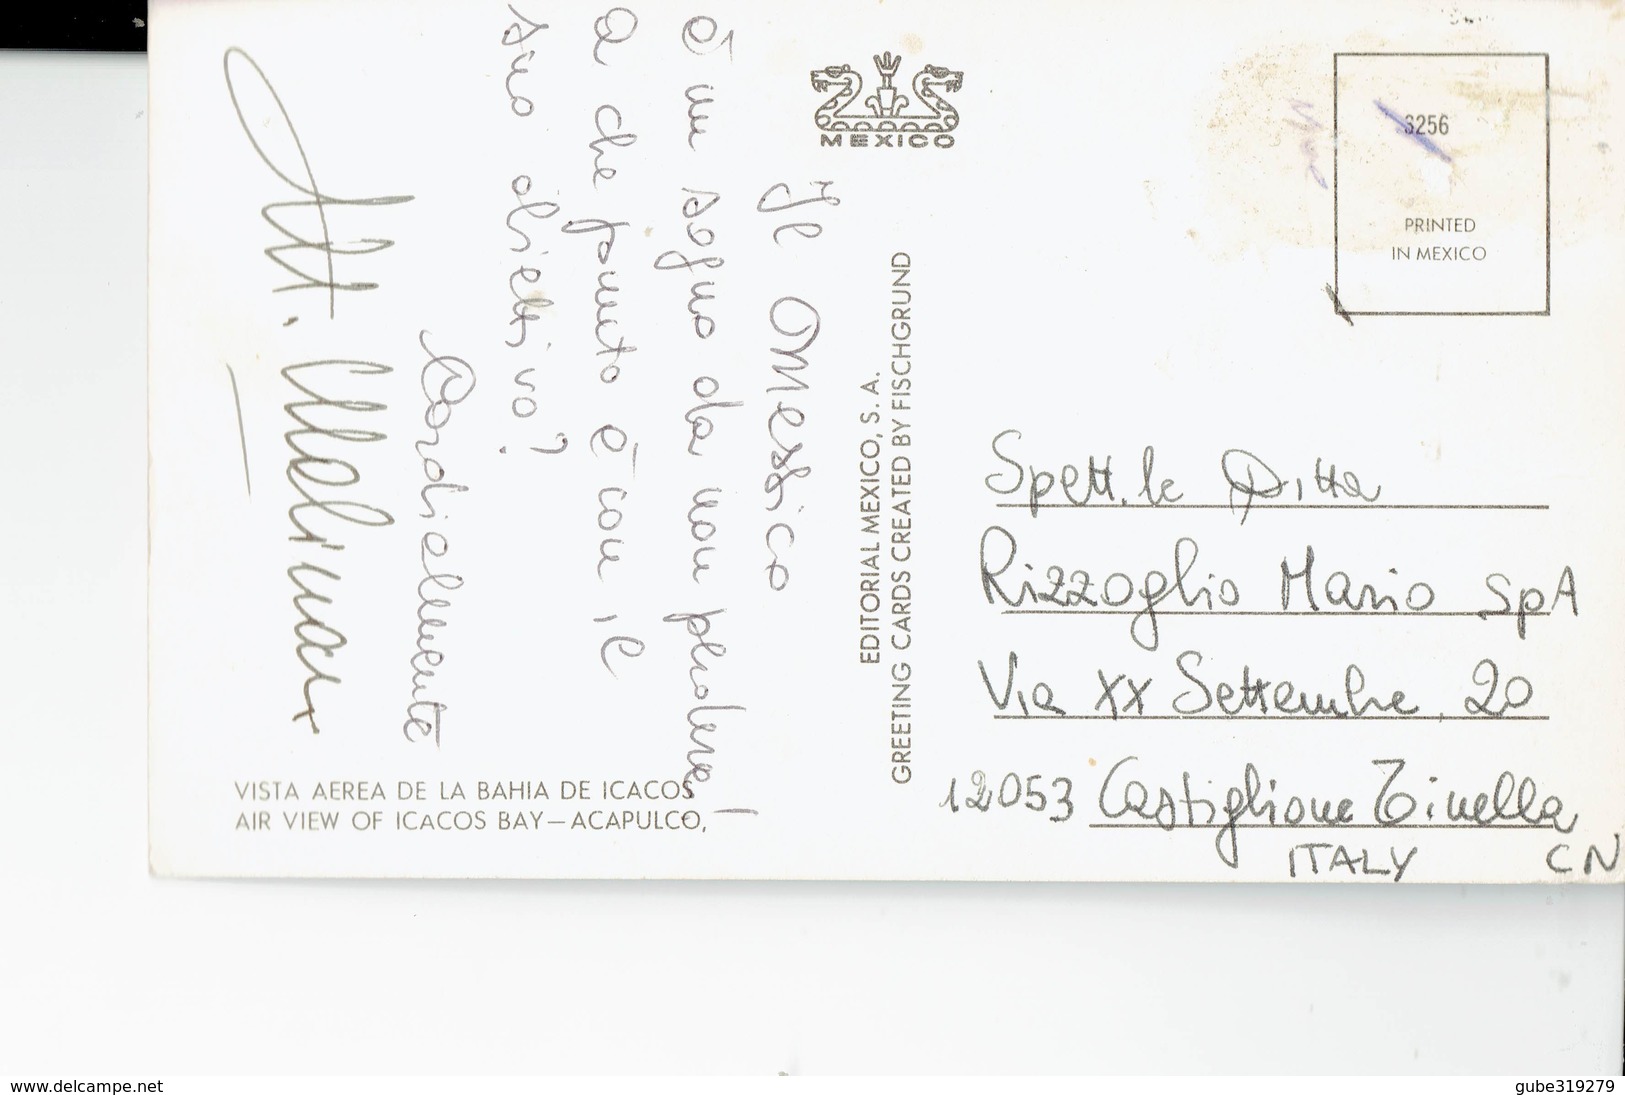 Il Messico
è un sogno da non perdere!
A che punto è con il
suo obiettivo?
Cordialmente
MEXICO
EDITORIAL MEXICO, S. A.
GREETING CARDS CREATED BY FISCHGRUND
3256
PRINTED
IN MEXICO
Spett.le Ditta
Rizzoglio Mario SpA
Via XX Settembre, 20
12053 Castiglione Tinella
ITALY CN
VISTA AEREA DE LA BAHIA DE ICACOS
AIR VIEW OF ICACOS BAY—ACAPULCO,
www.delcampe.net
gube319279